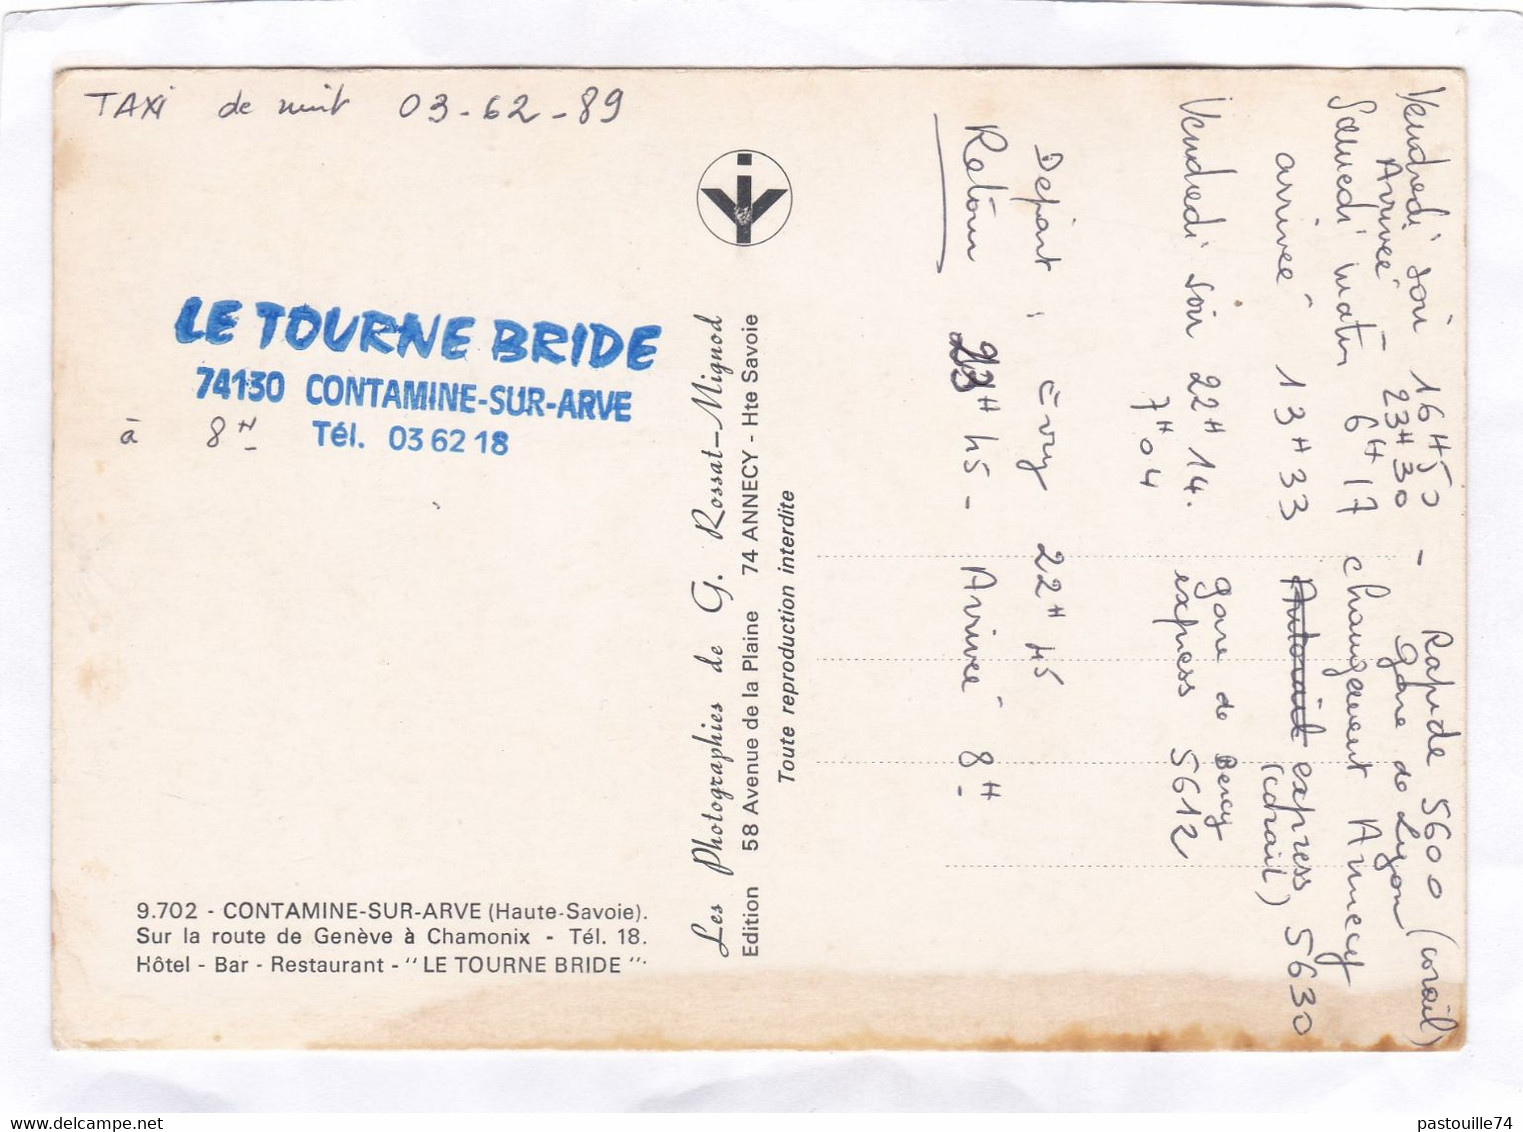 TAXI de nuit 03-62-89
LE TOURNE BRIDE
74130 CONTAMINE-SUR-ARVE
à 8H Tél. 03 62 18
9.702 - CONTAMINE-SUR-ARVE (Haute-Savoie).
Sur la route de Genève à Chamonix - Tél. 18.
Hôtel - Bar - Restaurant - "LE TOURNE BRIDE".
Les Photographies de G. Rossat-Mignod
Edition 58 Avenue de la Plaine 74 ANNECY - Hte Savoie
Toute reproduction interdite
Vendredi soir 16H50 - Rapide 5600 (corail)
Arrivée 23H30 Gare de Lyon
Samedi matin 6H17 changement Annecy
arrivée 13H33 Autorail express 5630
(corail)
Vendredi soir 22H14. gare de Bercy
7H04 express 5612
Départ : Evry 22H45
Retour 23H45 - Arrivée 8H
pastouille74